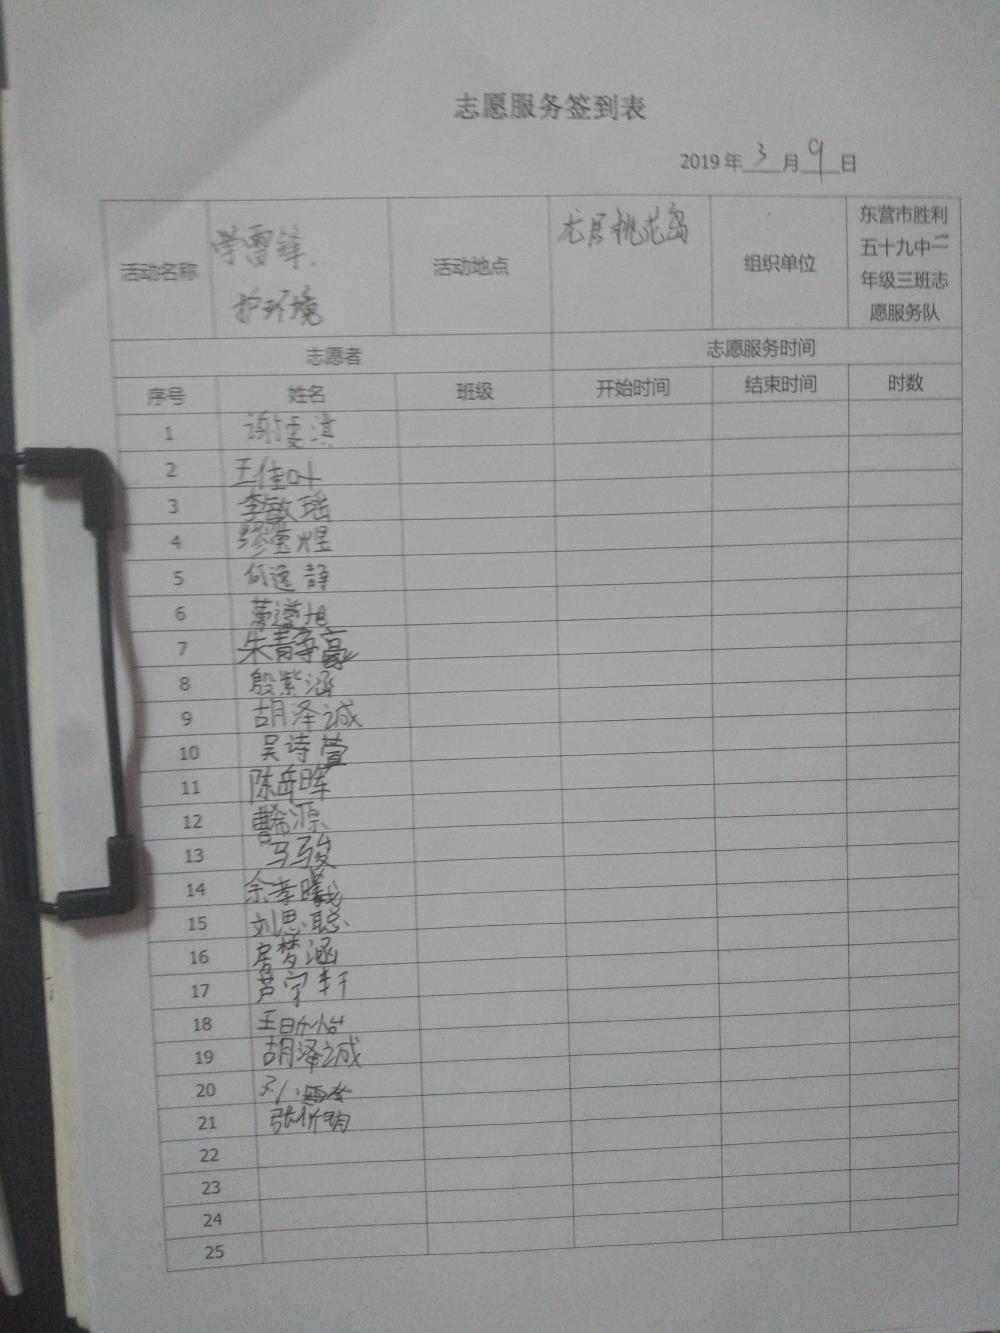 志愿服务签到表
2019年3月9日
活动名称 学雷锋、护环境 活动地点 龙居桃花岛 组织单位 东营市胜利五十九中二年级三班志愿服务队
志愿者 志愿服务时间
序号 姓名 班级 开始时间 结束时间 时数
1 谢淇
2 王佳叶
3 李敏瑶
4 煜
5 何逸静
6 旭
7 朱静豪
8 殷紫涵
9 胡泽诚
10 吴诗萱
11 陈岳晖
12 曹希源
13 马骏
14 余孝曦
15 刘思聪
16 房梦涵
17 芦宇轩
18 王昕怡
19 胡泽诚
20 刘
21 张忻玥
22
23
24
25